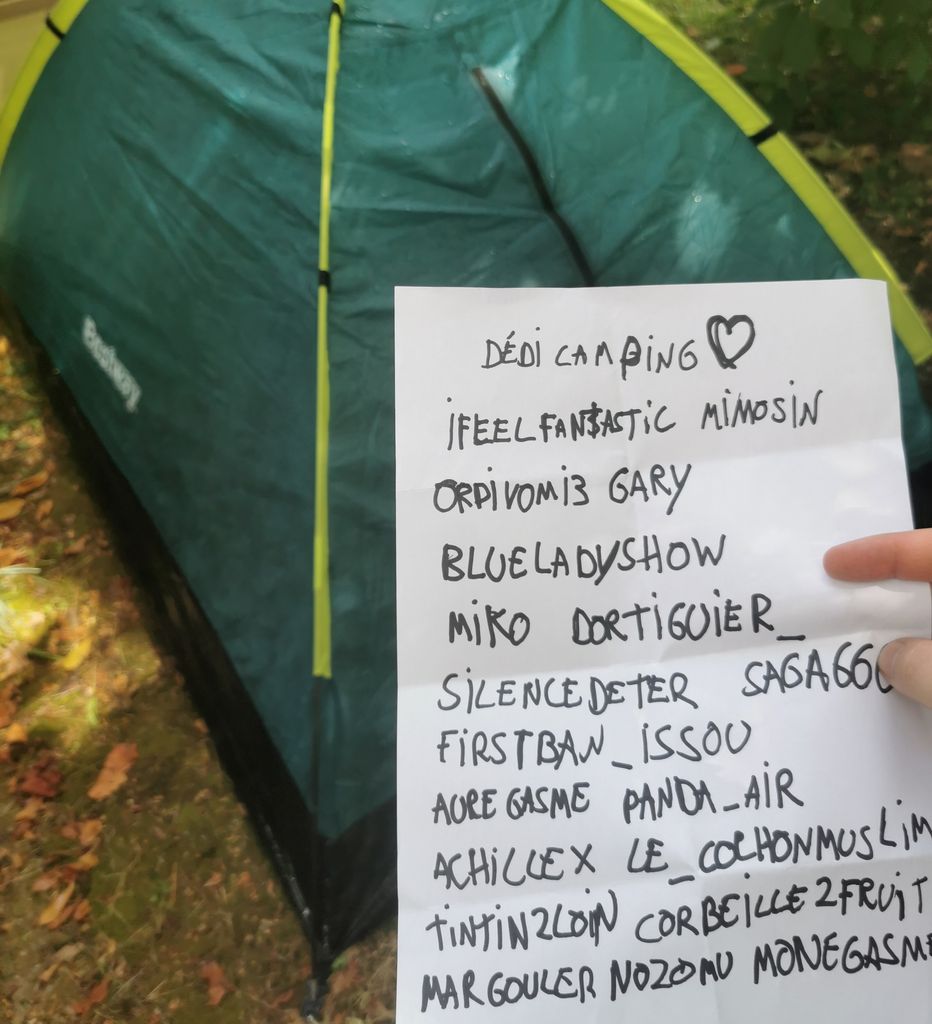 Bestway
DÉDI CAMPING
IFEELFAN$ASTIC MIMOSIN
ORPIVOMI3 GARY
BLUELADYSHOW
MIKO DORTIGUIER_
SILENCEDETER
FIRSTBAN_ISSOU
AUREGASME PANDA_AIR
ACHILLEX LE_COCHONMUSLIM
TINTIN2LOIN CORBEILLE2FRUIT
MARGOULER NOZOMU MONEGASME